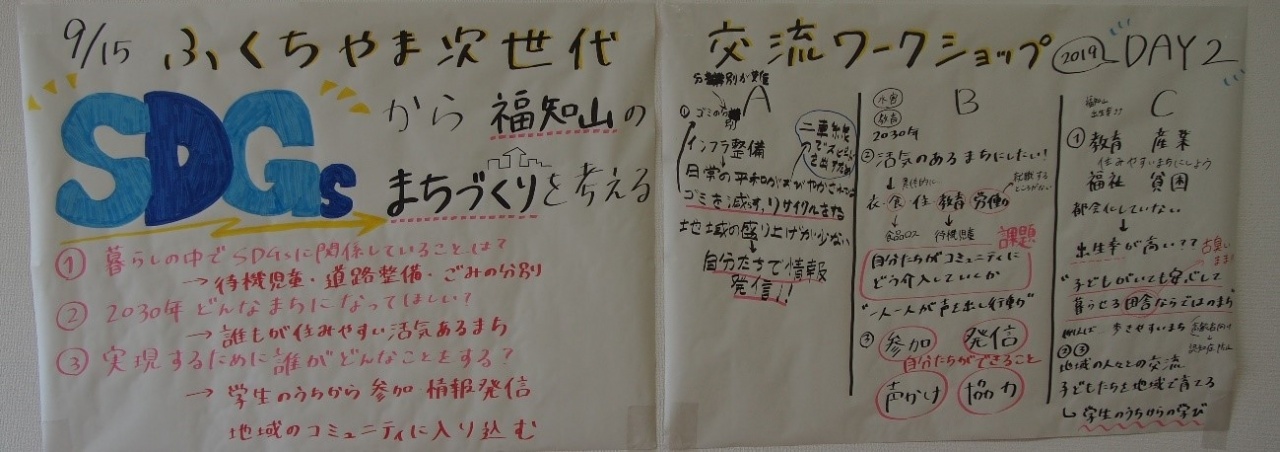 9/15 ふくちやま次世代
交流ワークショップ 2019 DAY2
SDGs
から福知山の
まちづくりを考える
① 暮らしの中でSDGsに関係していることは?
→待機児童・道路整備・ごみの分別
② 2030年どんなまちになってほしい?
→誰もが住みやすい活気あるまち
③ 実現するために誰がどんなことをする?
→学生のうちから参加 情報発信
地域のコミュニティに入り込む
A
①
インフラ整備
日常の平和が
ゴミを減す,リサイクルをする
地域の盛り上げが少ない
自分たちで情報
発信!!
B
水害
教育
2030年
②活気のあるまちにしたい!
衣・食・住 教育 労働
食品ロス 待機児童
課題
自分たちがコミュニティに
どう介入していくか
"一人一人が声を出し行動"
参加 発信
自分たちができること
声かけ 協力
C
① 教育 産業
住みやすいまちにしよう
福祉 貧困
都会化していない
出生率が高い??
"子どもがいても安心して
暮らせる田舎ならではのまち"
歩きやすいまち
②③
地域の人々との交流
子どもたちを地域で育てる
学生のうちからの学び